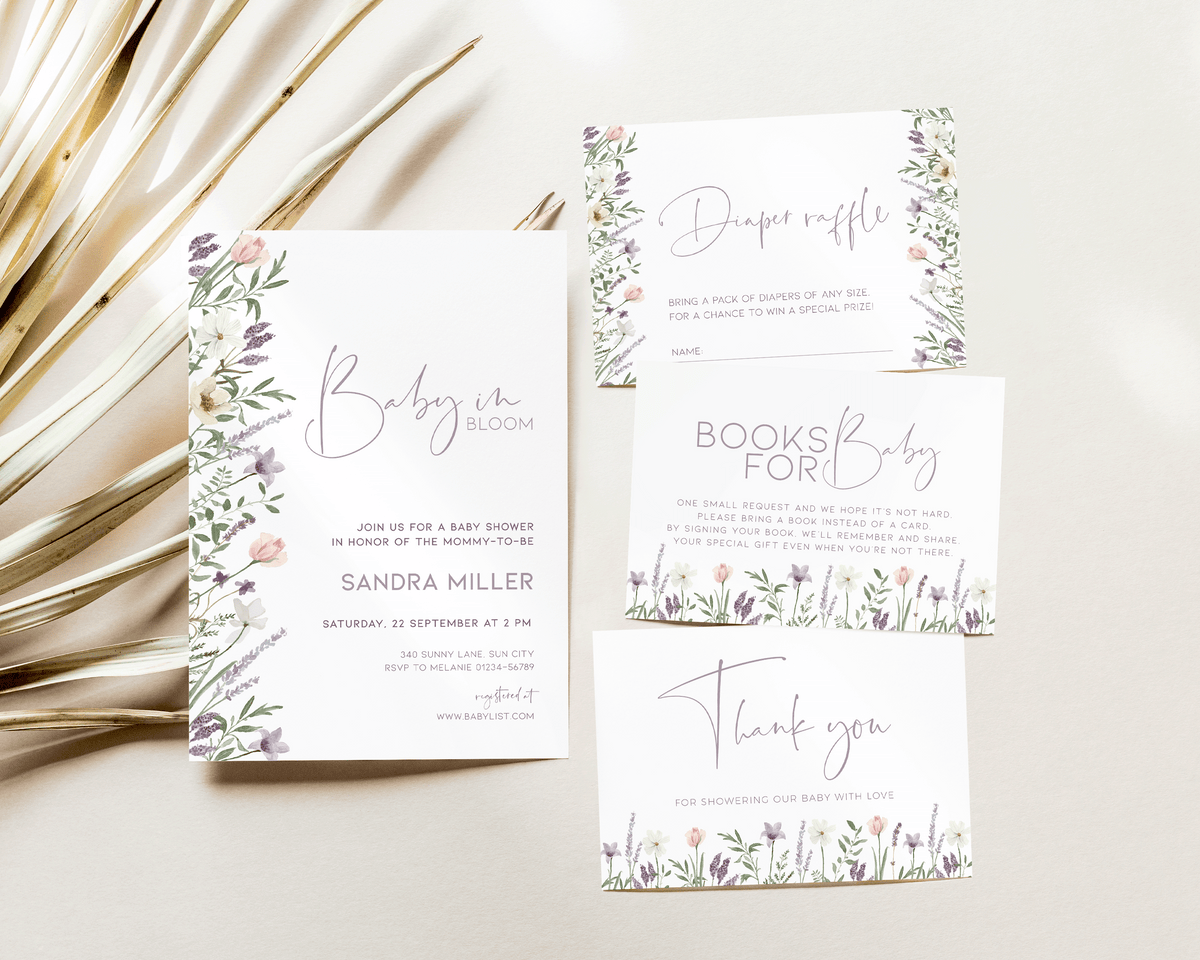 Baby in
BLOOM
JOIN US FOR A BABY SHOWER
IN HONOR OF THE MOMMY-TO-BE
SANDRA MILLER
SATURDAY, 22 SEPTEMBER AT 2 PM
340 SUNNY LANE, SUN CITY
RSVP TO MELANIE 01234-56789
registered at
WWW.BABYLIST.COM
Diaper raffle
BRING A PACK OF DIAPERS OF ANY SIZE,
FOR A CHANCE TO WIN A SPECIAL PRIZE!
NAME:
BOOKS
FOR Baby
ONE SMALL REQUEST AND WE HOPE IT'S NOT HARD.
PLEASE BRING A BOOK INSTEAD OF A CARD.
BY SIGNING YOUR BOOK, WE'LL REMEMBER AND SHARE,
YOUR SPECIAL GIFT EVEN WHEN YOU'RE NOT THERE.
Thank you
FOR SHOWERING OUR BABY WITH LOVE